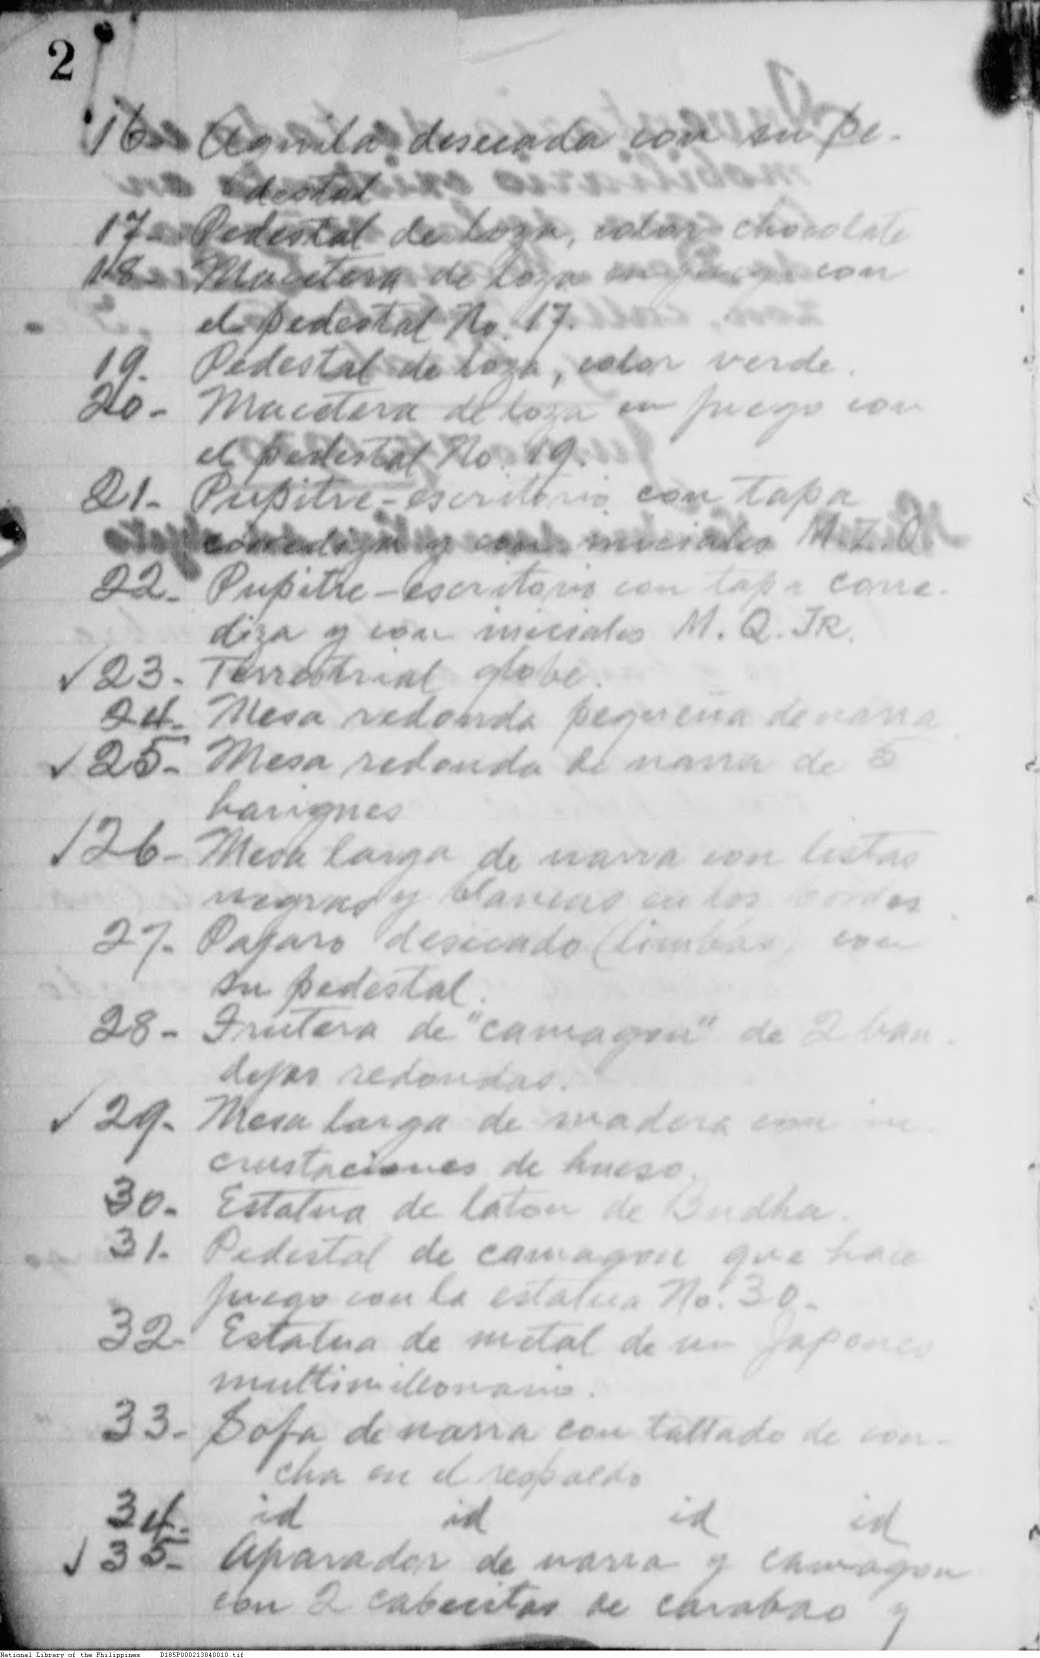 2
16- Aguila desecada con su pe-
destal
17- Pedestal de loza, color chocolate
18- Macetera de loza en juego con
el pedestal No. 17.
19. Pedestal de loza, color verde.
20- Macetera de loza en juego con
el pedestal No. 19.
21- Pupitre-escritorio con tapa
corrediza y con iniciales M.L.Q.
22- Pupitre-escritorio con tapa corre-
diza y con iniciales M. Q. JR.
✓ 23- Terrestrial globe.
24- Mesa redonda pequeña de narra
✓ 25- Mesa redonda de narra de 5
harigues
✓ 26- Mesa larga de narra con listas
negras y blancas en los bordes
27- Pajaro desecado (limbas) con
su pedestal.
28- Frutera de "camagon" de 2 ban-
dejas redondas.
✓ 29- Mesa larga de madera con in-
crustaciones de hueso.
30- Estatua de laton de Budha.
31- Pedestal de camagon que hace
juego con la estatua No. 30.
32- Estatua de metal de un Japones
multimillonario.
33- Sofa de narra con tallado de con-
cha en el respaldo
34- id id id id
✓ 35- Aparador de narra y camagon
con 2 cabecitas de carabao y
National Library of the Philippines D185P000213840010.tif